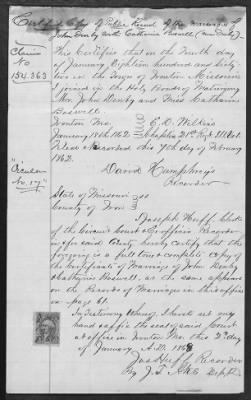 Certified Copy of Public Record of the marriage of
John Denby with Catherine Boswell (now Denby).
Claim
No
154.363
This Certifies that on the Ninth day
of January Eighteen hundred and sixty
two in the Town of Ironton Missouri
I joined in the Holy Bonds of Matrimony
Mr John Denby and Miss Catharine
Boswell
Ironton Mo.
January 18th 1862
Chaplin 21st Regt Ill Vol.
Filed & Recorded this 7th day of February
1862.
David Humphreys
Recorder
"Circular
No. 17"
State of Missouri
County of Iron
ss
I Joseph Huff Clerk
of the Circuit Court & Ex officio Recorder
in & for said County hereby certify that the
foregoing is a full true & complete copy of
the Certificate of Marriage of John Denby
& Catharine Boswell as the same appears
on the Records of Marriages in this office
on page 61.
In testimony whereof I hereto set my
hand & affix the seal of said Court
at office in Ironton Mo. this 2d day
of January A.D. 1868
Jos Huff Recorder
By J.T. Ake Dept